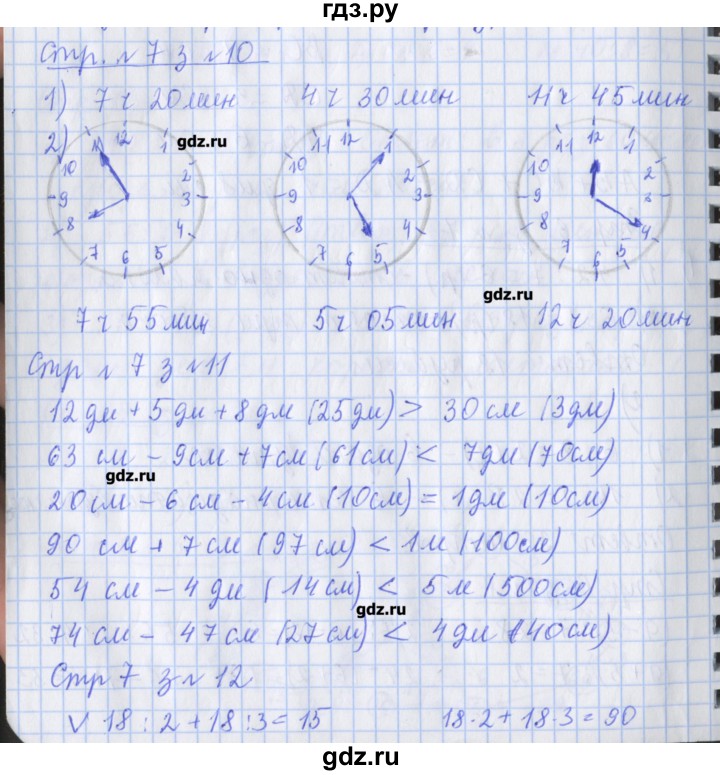 гдз.ру
Стр. № 7 з № 10
1) 7 ч 20 мин 4 ч 30 мин 11 ч 45 мин
2)
11 12 1 2 3 4 5 6 7 8 9 10
gdz.ru
11 12 1 2 3 4 5 6 7 8 9 10
11 12 1 2 3 4 5 6 7 8 9 10
gdz.ru
7 ч 55 мин 5 ч 05 мин 12 ч 20 мин
Стр № 7 з № 11
12 дм + 5 дм + 8 дм (25 дм) > 30 см (3 дм)
63 см - 9 см + 7 см (61 см) < 7 дм (70 см)
gdz.ru
20 см - 6 см - 4 см (10 см) = 1 дм (10 см)
90 см + 7 см (97 см) < 1 м (100 см)
54 см - 4 дм (14 см) < 5 м (500 см)
gdz.ru
74 см - 47 см (27 см) < 4 дм (40 см)
Стр 7 з № 12
V 18 : 2 + 18 : 3 = 15 18 · 2 + 18 · 3 = 90
gdz.ru